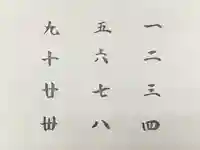 一
二
三
四
五
六
七
八
九
十
廿
卅